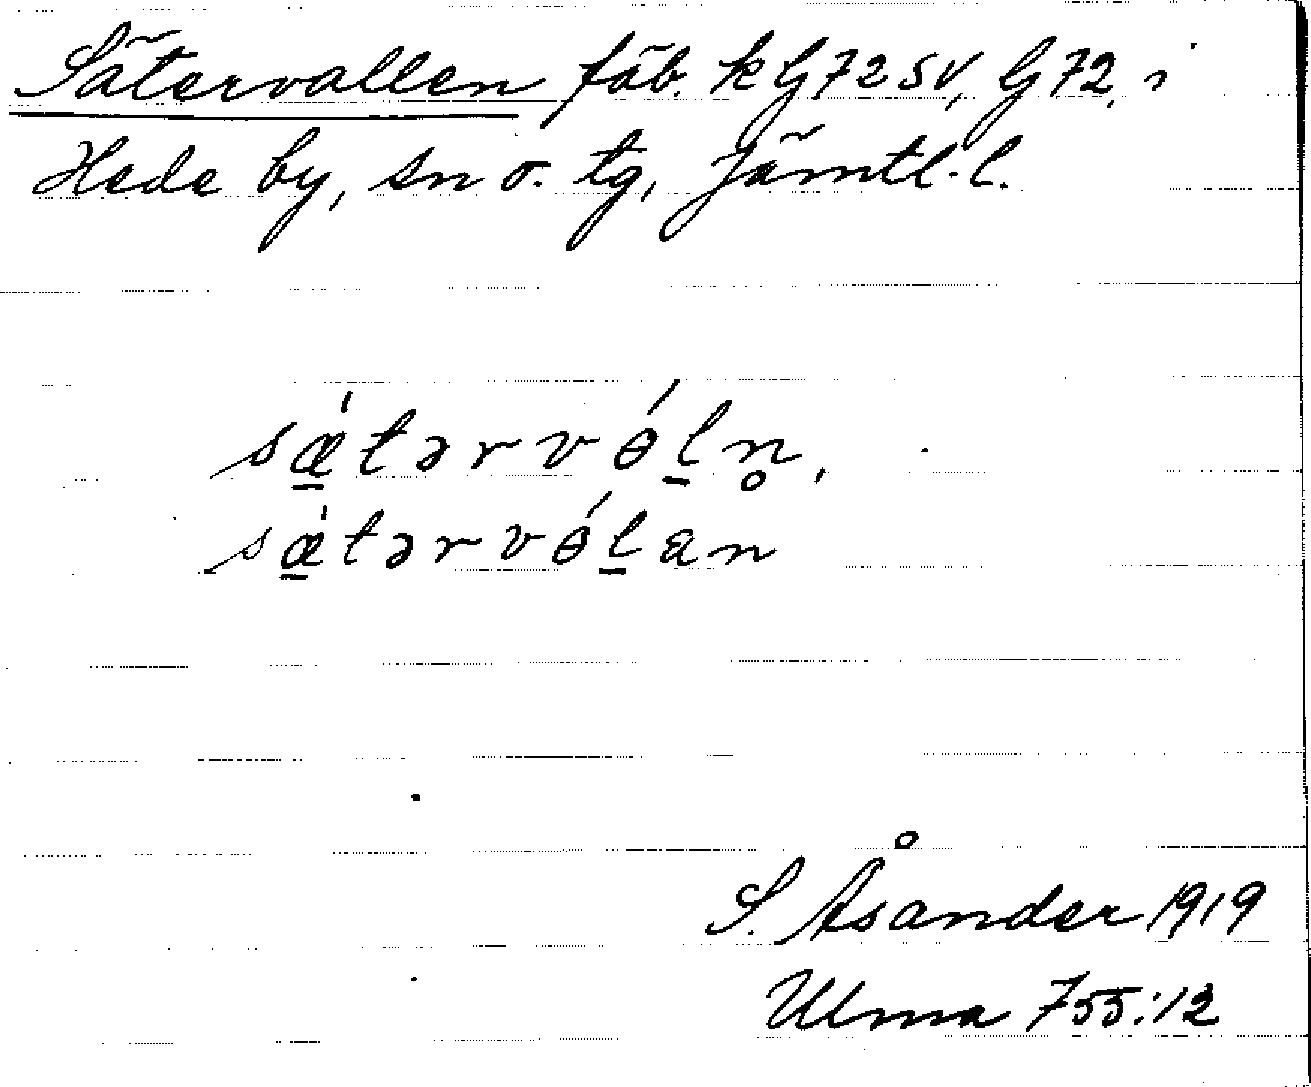 Sätervallen fäb. kG72SV, G72, i
Hede by, sn o. tg, Jämtl. l.
sæ̱̀tərvɵ́ḻn̥,
sæ̱̀tərvɵ́ḻan
S. Åsander 1919
Ulma 755:12